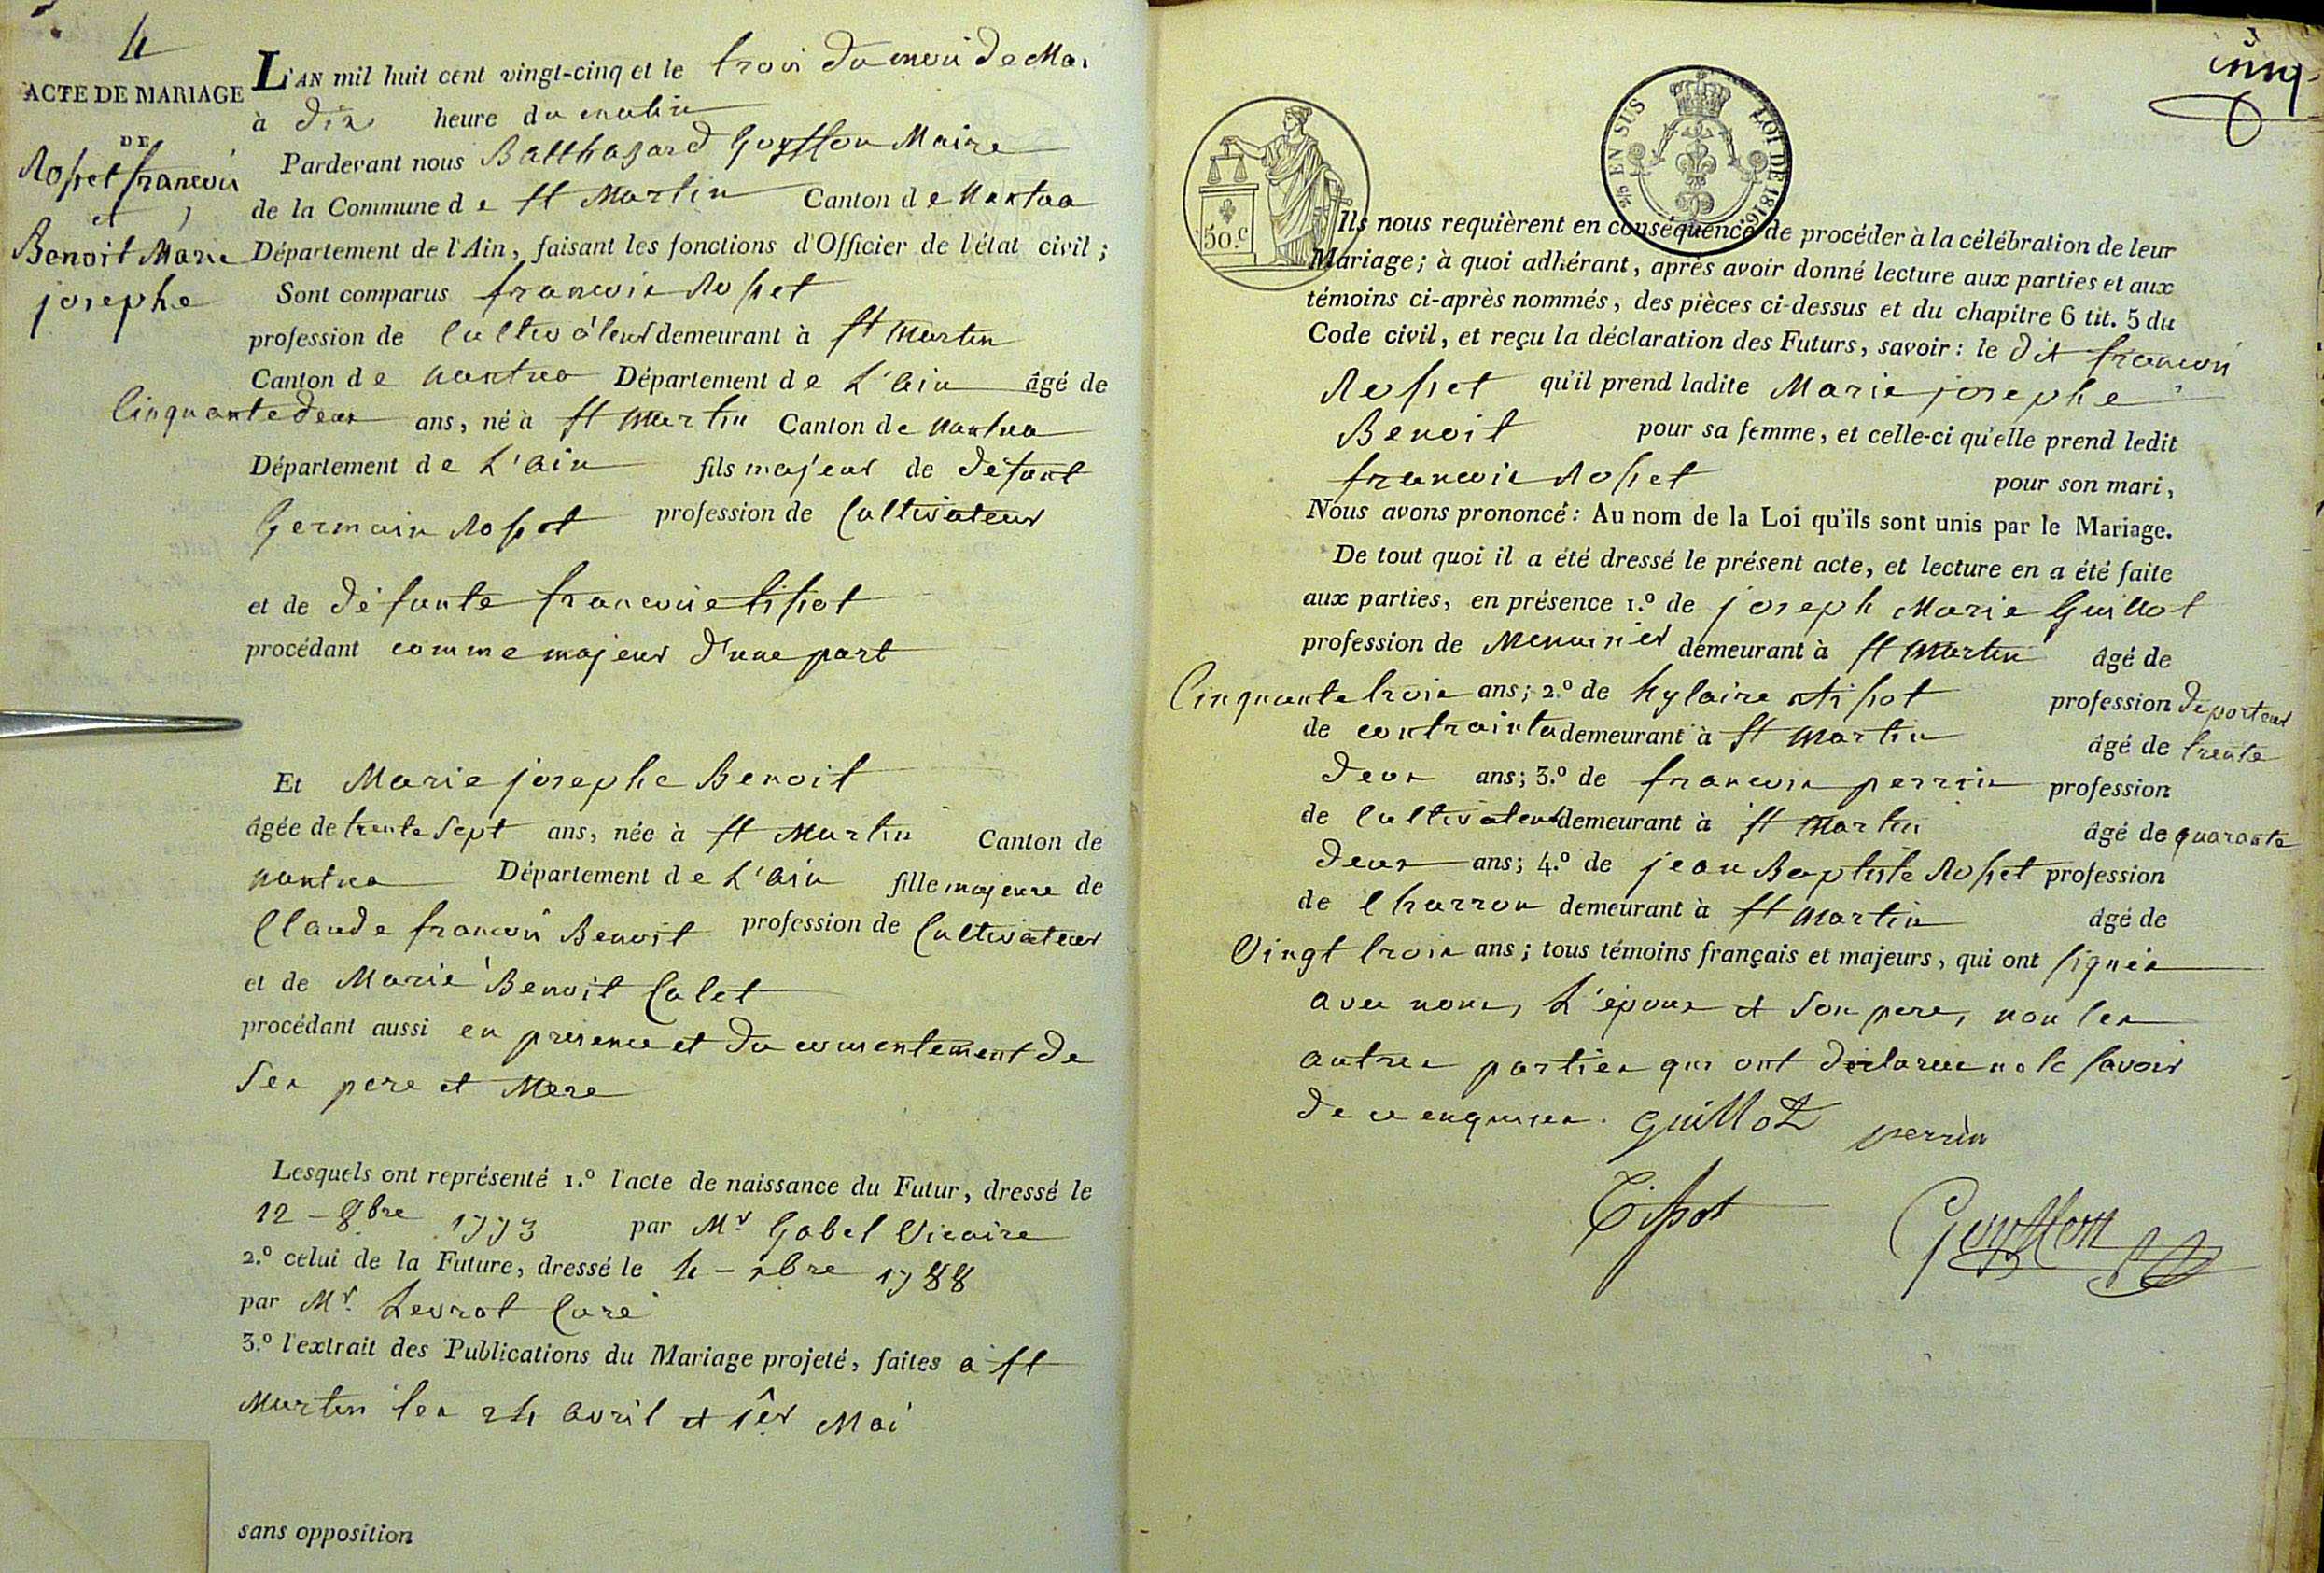 4
ACTE DE MARIAGE
DE
Rosset françois
et
Benoit Marie
josephe
L'AN mil huit cent vingt-cinq et le trois du mois de Mai
à dix heure du matin
Pardevant nous Balthazard Goyffon Maire
de la Commune de st Martin Canton de Nantua
Département de l'Ain, faisant les fonctions d'Officier de l'état civil;
Sont comparus françois Rosset
profession de Cultivateur demeurant à st Martin
Canton de nantua Département de L'ain âgé de
Cinquante deux ans, né à st Martin Canton de nantua
Département de L'ain fils majeur de défunt
Germain Rosset profession de Cultivateur
et de défunte françoise tissot
procédant comme majeur d'une part
Et Marie josephe Benoit
âgée de trente sept ans, née à st Martin Canton de
nantua Département de L'ain fille majeure de
Claude françois Benoit profession de Cultivateur
et de Marie Benoit Calet
procédant aussi en presence et du consentement de
ses pere et Mere
Lesquels ont représenté 1.º l'acte de naissance du Futur, dressé le
12 - 8bre 1773 par Mr Gobel Vicaire
2.º celui de la Future, dressé le 4 - xbre 1788
par Mr. Levrat Curé
3.º l'extrait des Publications du Mariage projeté, faites à st
Martin les 24 avril et 1er Mai
sans opposition
cinq
50.c
EN SUS LOI DE 1816
Ils nous requièrent en conséquence de procéder à la célébration de leur
Mariage; à quoi adhérant, après avoir donné lecture aux parties et aux
témoins ci-après nommés, des pièces ci-dessus et du chapitre 6 tit. 5 du
Code civil, et reçu la déclaration des Futurs, savoir: le dit françois
Rosset qu'il prend ladite Marie josephe
Benoit pour sa femme, et celle-ci qu'elle prend ledit
françois Rosset pour son mari,
Nous avons prononcé: Au nom de la Loi qu'ils sont unis par le Mariage.
De tout quoi il a été dressé le présent acte, et lecture en a été faite
aux parties, en présence 1.º de joseph Marie Guillot
profession de Menuisier demeurant à st Martin âgé de
Cinquante trois ans; 2.º de hylaire tissot profession de porteur
de contrainte demeurant à st Martin âgé de trente
deux ans; 3.º de françois perrin profession
de Cultivateur demeurant à st Martin âgé de quarante
deux ans; 4.º de jean Baptiste Rosset profession
de Charron demeurant à st Martin âgé de
Vingt trois ans; tous témoins français et majeurs, qui ont signés
avec nous, L'époux et son pere, non les
autres parties qui ont déclarée ne le savoir
de ce enquises. Guillot perrin
Tissot Goyffon